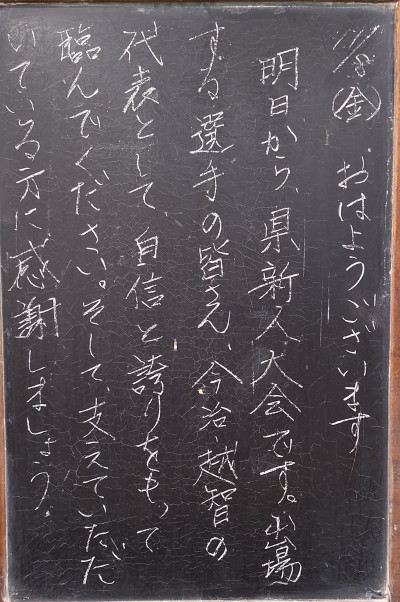 11/8(金) おはようございます
明日から、県新人大会です。出場
する選手の皆さん、今治・越智の
代表として、自信と誇りをもって
臨んでください。そして、支えていただ
いている方に感謝しましょう。